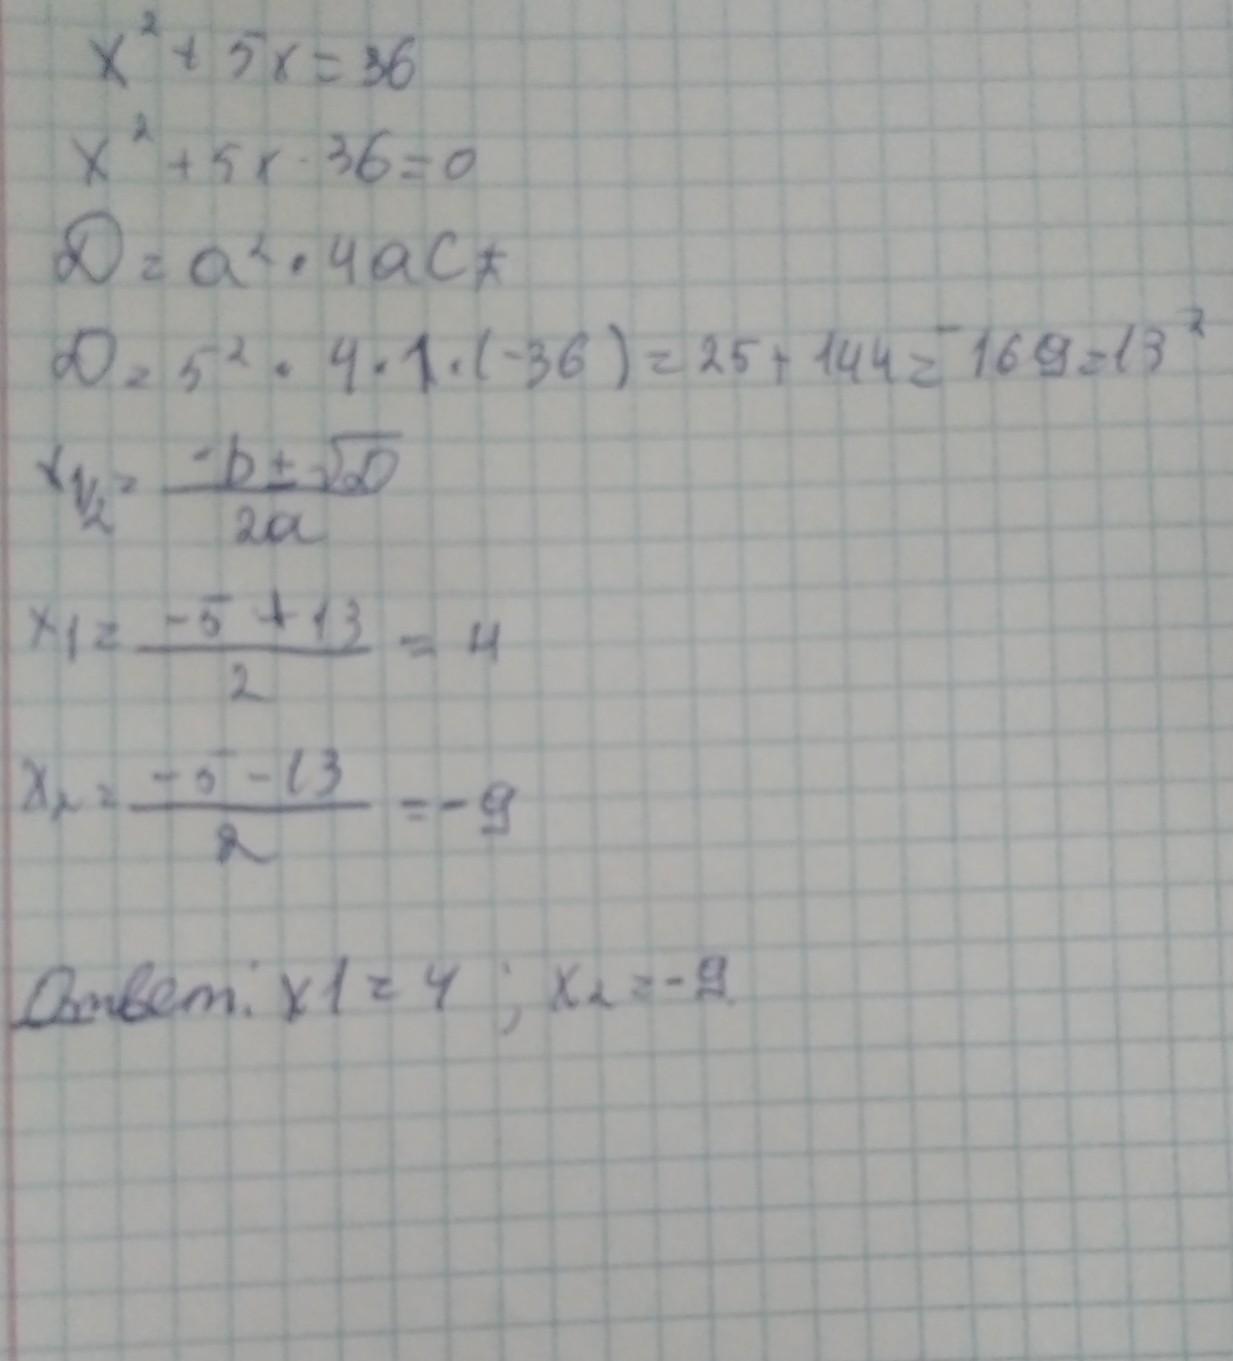 x² + 5x = 36
x² + 5x - 36 = 0
D = a² · 4ac
D = 5² · 4 · 1 · (-36) = 25 + 144 = 169 = 13²
x½ = (-b ± √D) / 2a
x1 = (-5 + 13) / 2 = 4
x2 = (-5 - 13) / 2 = -9
Ответ: x1 = 4 ; x2 = -9